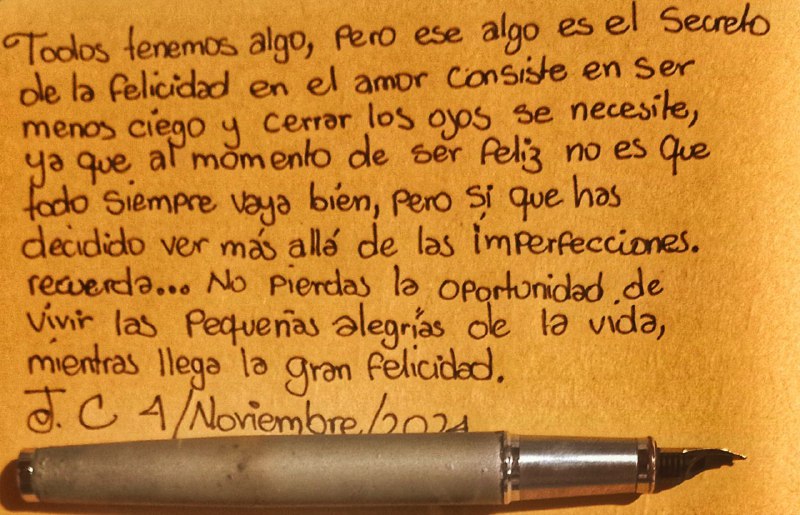 Todos tenemos algo, pero ese algo es el Secreto
de la felicidad en el amor consiste en ser
menos ciego y cerrar los ojos se necesite,
ya que al momento de ser feliz no es que
todo siempre vaya bien, pero si que has
decidido ver más allá de las imperfecciones.
recuerda... No pierdas la oportunidad de
vivir las pequeñas alegrías de la vida,
mientras llega la gran felicidad.
J. C 4/Noviembre/2024